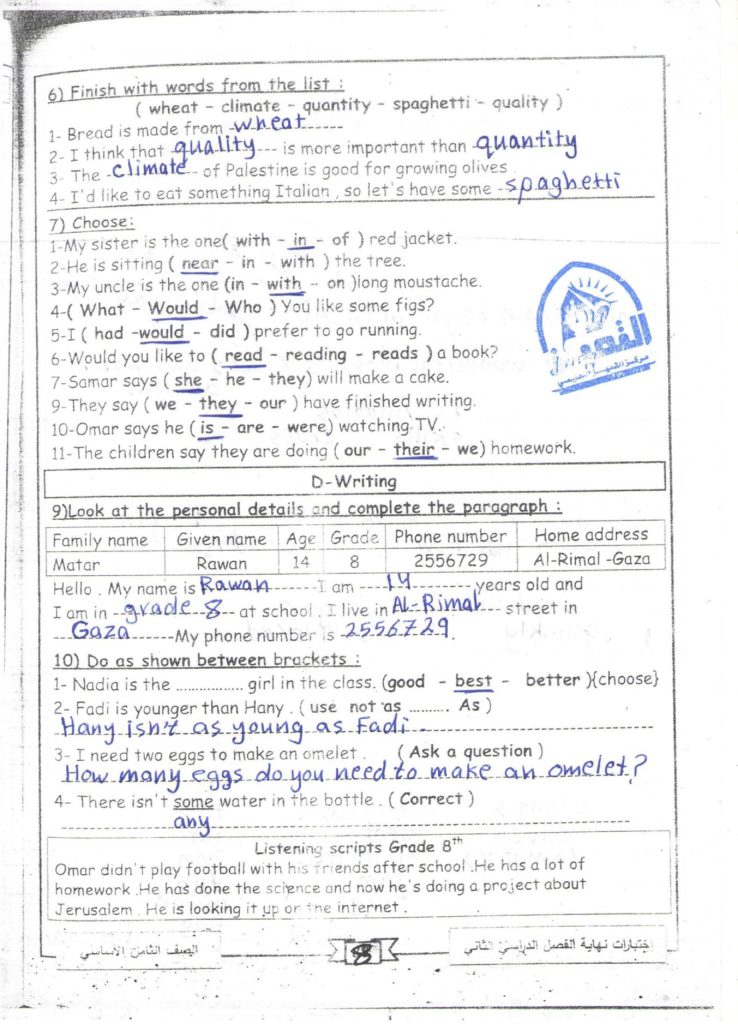 6) Finish with words from the list :
( wheat – climate – quantity – spaghetti – quality )
1- Bread is made from wheat
2- I think that quality --- is more important than quantity
3- The climate -- of Palestine is good for growing olives .
4- I'd like to eat something Italian , so let's have some spaghetti
7) Choose:
1-My sister is the one( with – in – of ) red jacket.
2-He is sitting ( near – in – with ) the tree.
3-My uncle is the one (in – with – on )long moustache.
4-( What – Would – Who ) You like some figs?
5-I ( had –would – did ) prefer to go running.
6-Would you like to ( read – reading – reads ) a book?
7-Samar says ( she – he – they) will make a cake.
9-They say ( we – they – our ) have finished writing.
10-Omar says he ( is – are – were) watching TV.
11-The children say they are doing ( our – their – we) homework.
القمة
D-Writing
9)Look at the personal details and complete the paragraph :
Family name Given name Age Grade Phone number Home address
Matar Rawan 14 8 2556729 Al-Rimal -Gaza
Hello . My name is Rawan --------I am ----14---------- years old and
I am in --grade 8-- at school . I live in AL-Rimal --- street in
Gaza -------My phone number is 2556729.
10) Do as shown between brackets :
1- Nadia is the ................. girl in the class. (good – best – better ){choose}
2- Fadi is younger than Hany . ( use not as .......... As )
Hany isn't as young as Fadi .
3- I need two eggs to make an omelet . ( Ask a question )
How many eggs do you need to make an omelet?
4- There isn't some water in the bottle . ( Correct )
any
Listening scripts Grade 8th
Omar didn't play football with his friends after school .He has a lot of
homework .He has done the science and now he's doing a project about
Jerusalem . He is looking it up on the internet .
إختبارات نهاية الفصل الدراسي الثاني 8 الصف الثامن الأساسي